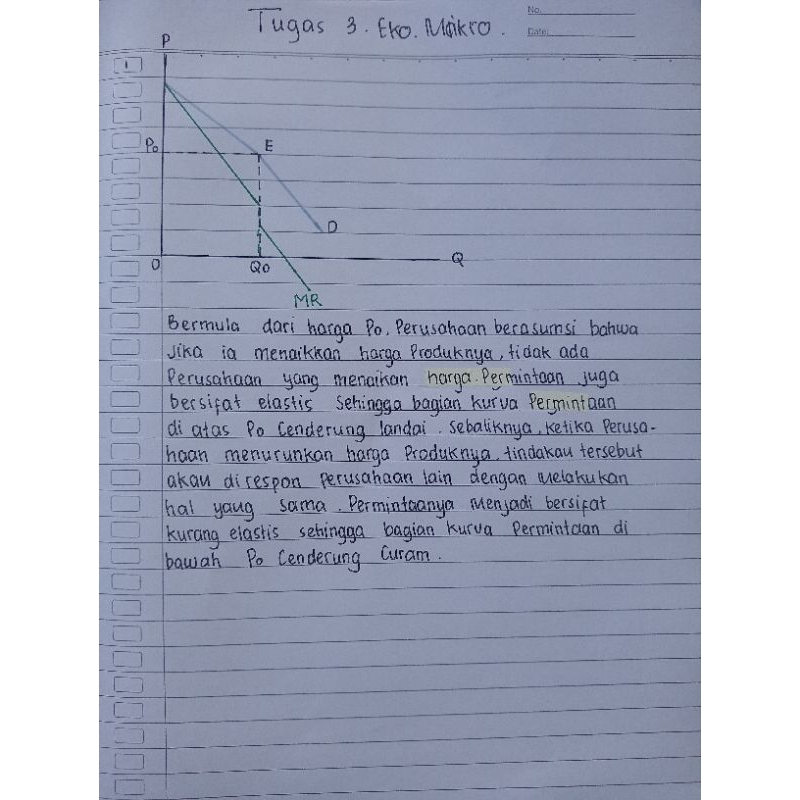 Tugas 3. Eko. Makro.
No.
Date:
1
P
Po
E
D
O
Qo
Q
MR
Bermula dari harga Po, Perusahaan berasumsi bahwa
Jika ia menaikkan harga Produknya, tidak ada
Perusahaan yang menaikan harga. Permintaan juga
bersifat elastis sehingga bagian kurva Permintaan
di atas Po Cenderung landai. Sebaliknya, ketika Perusa-
haan menurunkan harga Produknya, tindakau tersebut
akau di respon perusahaan lain dengan melakukan
hal yaug sama. Permintaanya menjadi bersifat
kurang elastis sehingga bagian kurva Permintaan di
bawah Po Cenderung Curam.